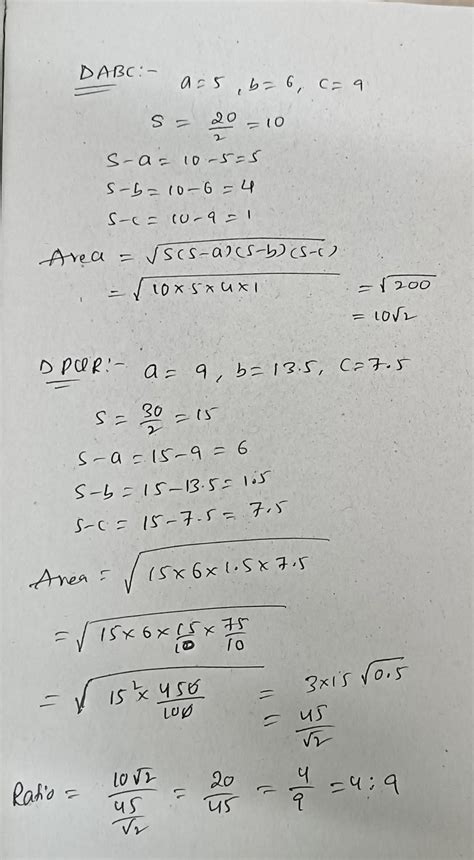 DABC:- a=5, b=6, c=9
S = 20/2 = 10
S-a = 10-5=5
S-b = 10-6 = 4
S-c = 10-9 = 1
Area = √S(S-a)(S-b)(S-c)
= √10×5×4×1 = √200
= 10√2
DPQR:- a= 9, b=13.5, C=7.5
S = 30/2 = 15
S-a = 15-9 = 6
S-b = 15-13.5=1.5
S-c = 15-7.5 = 7.5
Area = √15×6×1.5×7.5
= √15×6×15/10×75/10
= √15²×450/100 = 3×15√0.5
= 45/√2
Ratio = 10√2/(45/√2) = 20/45 = 4/9 = 4:9